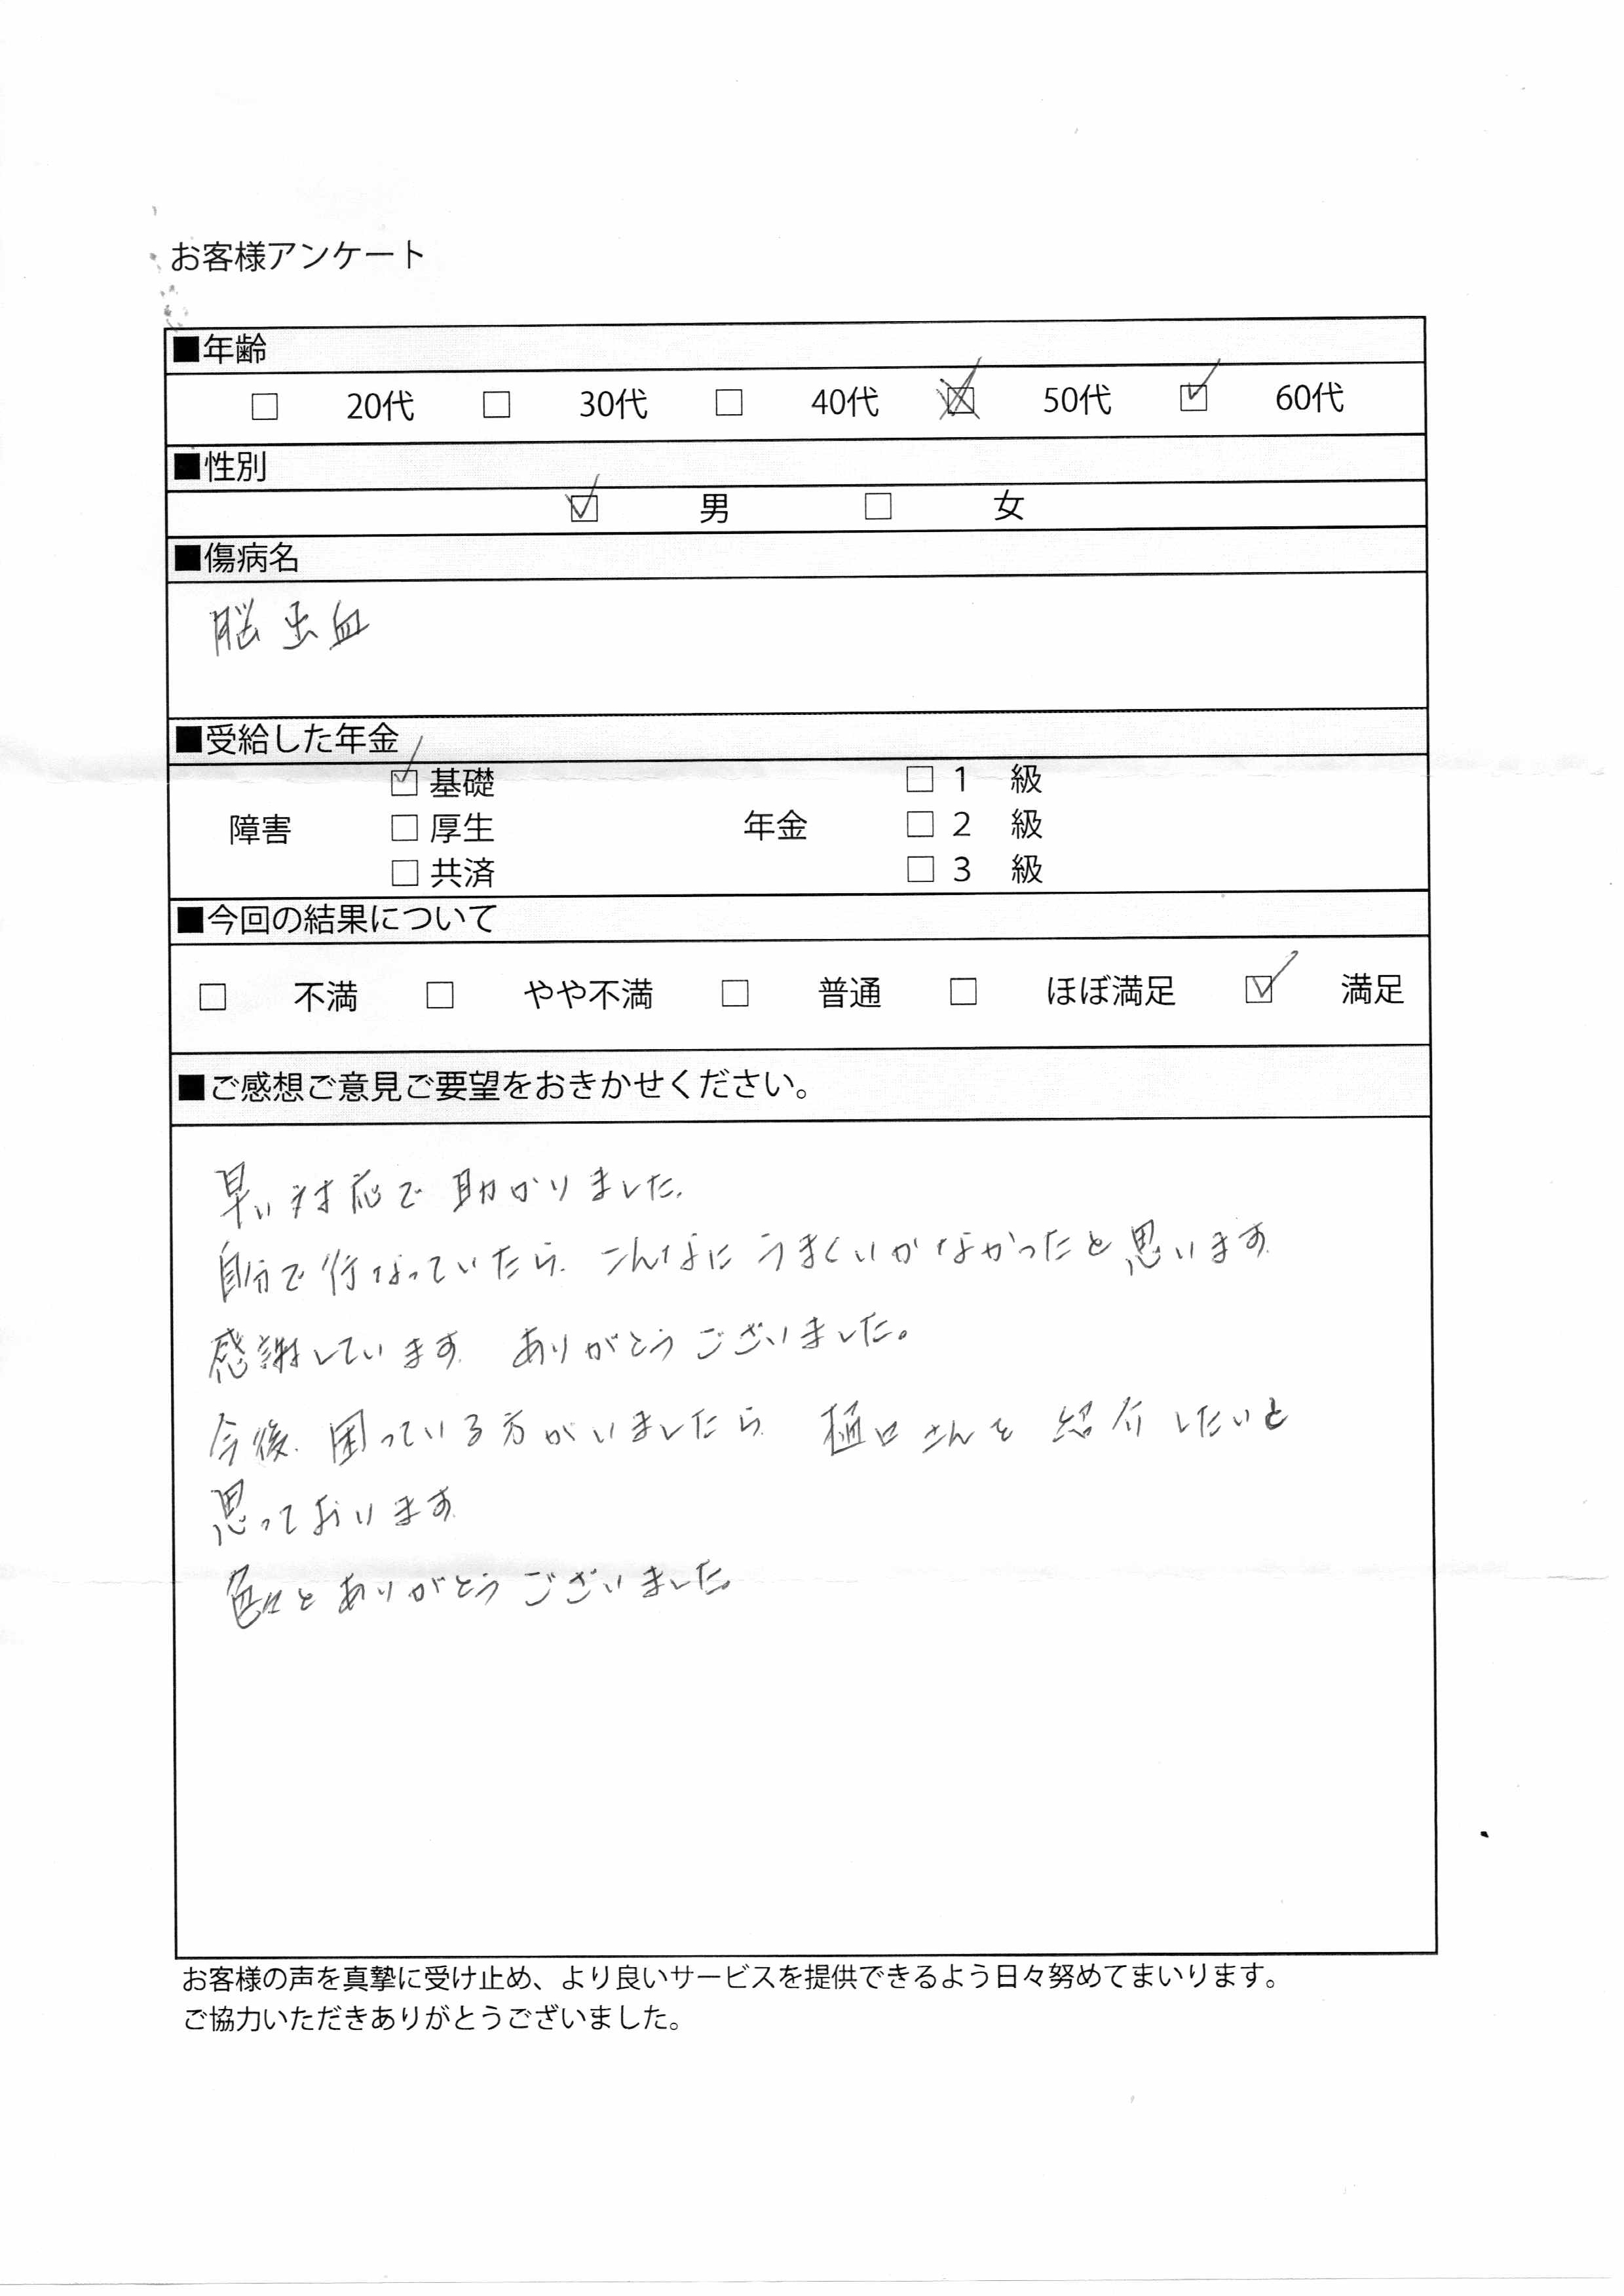 お客様アンケート
■年齢
□ 20代 □ 30代 □ 40代 ☒ 50代 ☑ 60代
■性別
☑ 男 □ 女
■傷病名
脳出血
■受給した年金
☑ 基礎 □ 1 級
障害 □ 厚生 年金 □ 2 級
□ 共済 □ 3 級
■今回の結果について
□ 不満 □ やや不満 □ 普通 □ ほぼ満足 ☑ 満足
■ご感想ご意見ご要望をおきかせください。
早い対応で助かりました。
自分で行なっていたら、こんなにうまくいかなかったと思います。
感謝しています。ありがとうございました。
今後、困っている方がいましたら、樋口さんを紹介したいと
思っております。
色々とありがとうございました。
お客様の声を真摯に受け止め、より良いサービスを提供できるよう日々努めてまいります。
ご協力いただきありがとうございました。